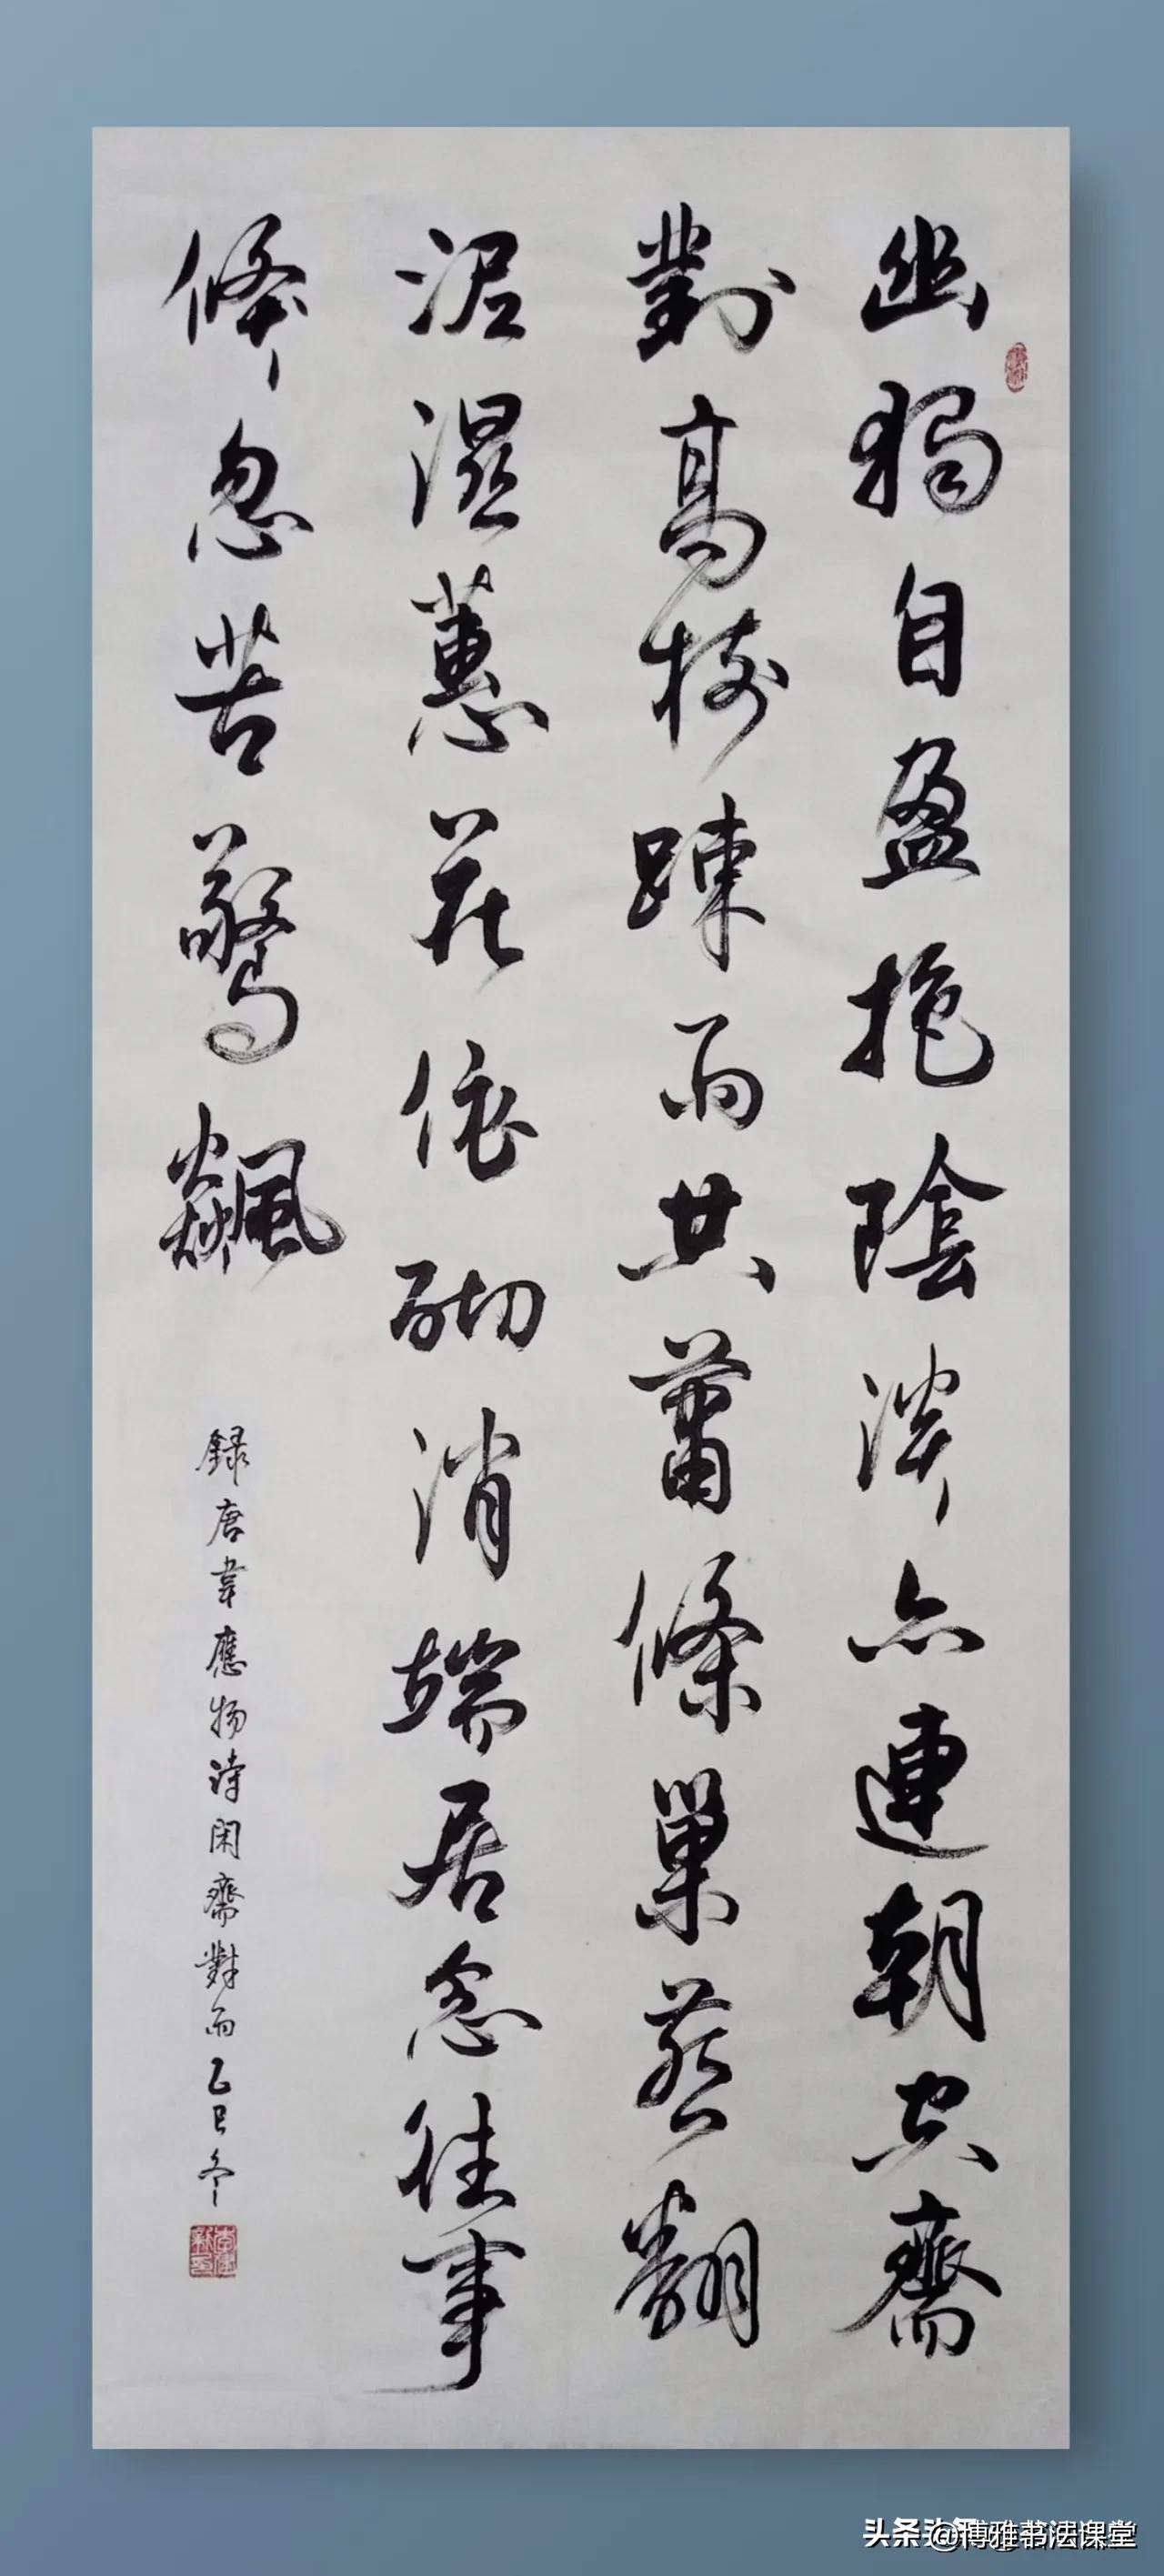 幽獨自盈抱陰淡亦連朝空齋
對高樹踈雨共蕭條巢燕翻
泥濕蕙花依砌消端居念往事
倏忽苦驚飇
録唐韋應物詩閑齋對雨乙巳冬
头条 @博雅书法课堂